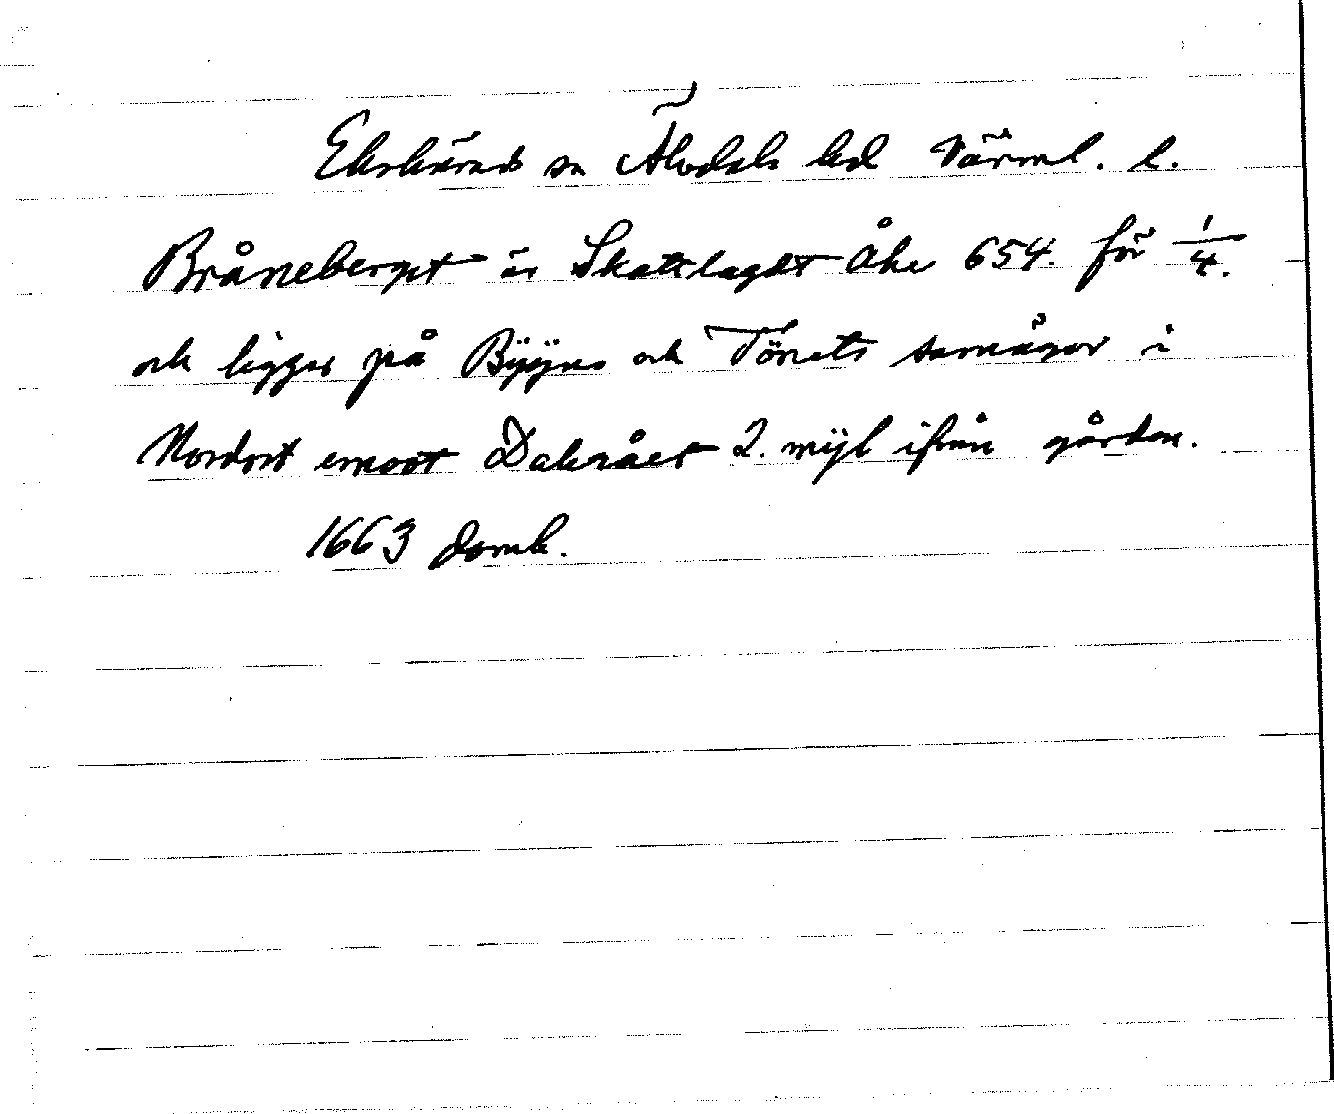 Ekshärads sn Älvdals hd Värml. l.
Bråneberget är Skattlagdt Åhr 654. för 1/4.
och ligger på Bÿÿns och Tönets samägor i
Nordost emoot Dalrået 2. mijl ifrån gården.
1663 domb.